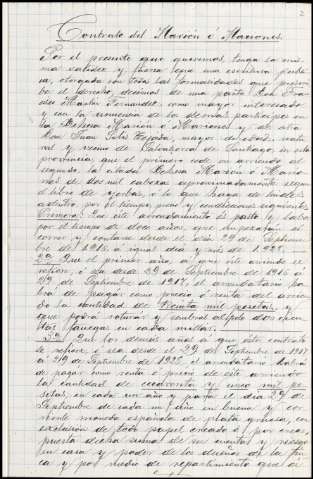 2
Contrato del Marion ó Mariones
Por el presente que queremos tenga la mis-
ma validez y fuerza que una escritura públi-
ca, otorgada con todas las formalidades que prescri-
be el derecho, decimos de una parte Don Fran-
cisco Martin Fernandez como mayor interesado
y con la anuencia de los demás participes en
la Dehesa Marion ó Mariones y de otra
Don Juan Solis, mayor de edad, casa-
do y vecino de de Santiago, en esta
provincia, que el primero cede en arriendo al
segundo la citada Dehesa Marion ó Mario-
nes de doscientas aproximadamente segun
el libro de, o sea hasta de lindero
adentro por el tiempo, precio y condiciones siguientes:
Primera: Que este arrendamiento á pasto y labor
por el tiempo de diez años, que empezarán á
correr y contarse desde el dia 29 de Septiem-
bre de 1916 á igual dia y mes de 1.926.
2ª: Que el primer año, á que este arriendo se
refiere, ó sea desde 29 de Septiembre de 1916 á
29 de Septiembre de 1917, el arrendatario ha-
brá de pagar como precio ó renta del arrien-
do la cantidad de Treinta mil pesetas, y
que podrá roturar y sembrar
fanegas en cada
3ª: En los demás años á que este contrato
se refiere, ó sea desde el 29 de Septiembre de 1917
á 29 de Septiembre de 1926 el arrendatario habrá
de pagar como renta ó precio de este arriendo
la cantidad de cuarenta y cinco mil pe-
setas, en cada un año y para el dia 29 de
Septiembre de cada un año en buena y cor-
riente moneda española de plata gruesa, con
exclusion de todo papel creado ó por crear,
puesta dicha suma de su cuenta y riesgo
en casa y poder de los dueños de la fin-
ca y por medio de repartimiento que al